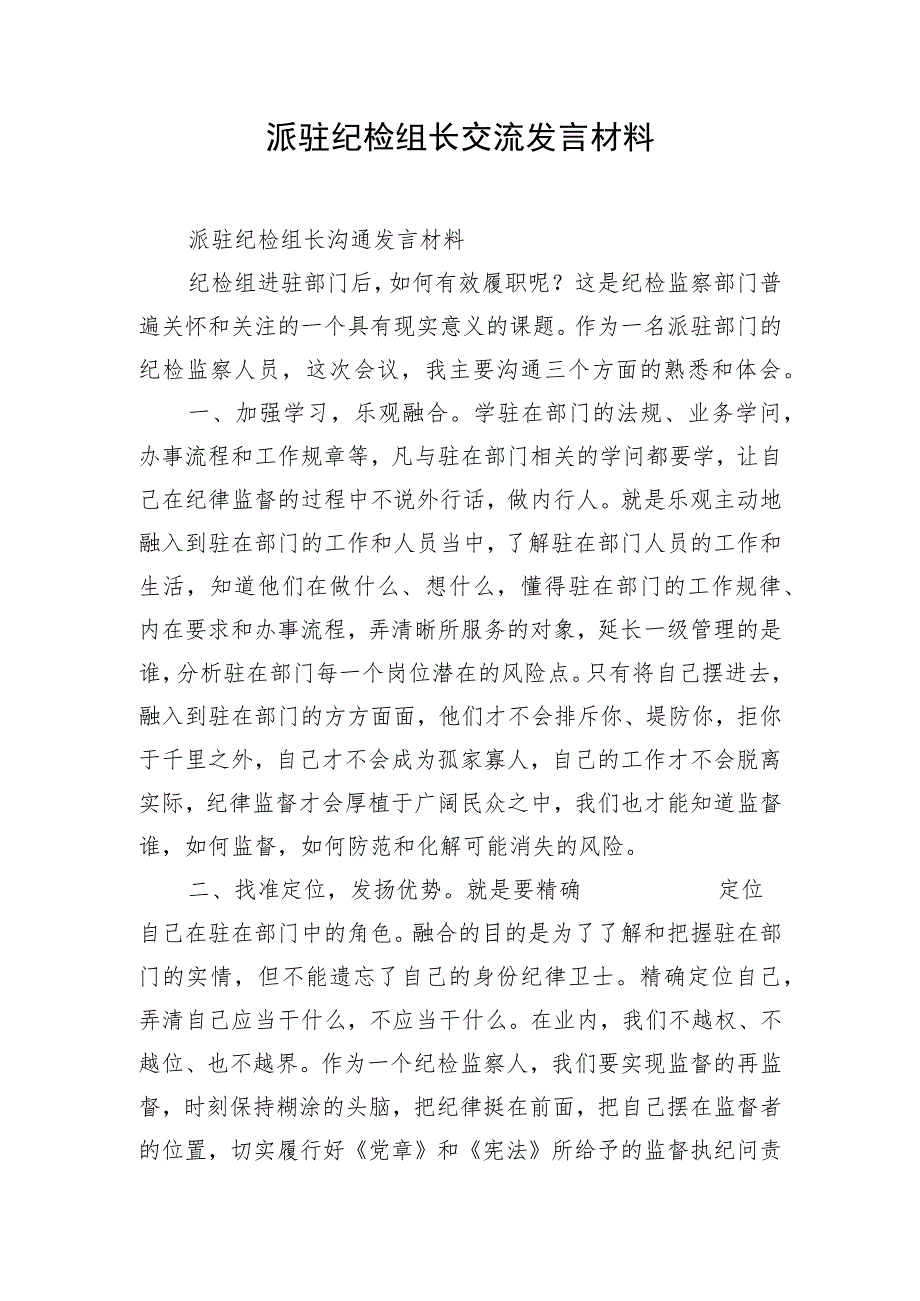 派驻纪检组长交流发言材料
派驻纪检组长沟通发言材料
纪检组进驻部门后，如何有效履职呢？这是纪检监察部门普
遍关怀和关注的一个具有现实意义的课题。作为一名派驻部门的
纪检监察人员，这次会议，我主要沟通三个方面的熟悉和体会。
一、加强学习，乐观融合。学驻在部门的法规、业务学问，
办事流程和工作规章等，凡与驻在部门相关的学问都要学，让自
己在纪律监督的过程中不说外行话，做内行人。就是乐观主动地
融入到驻在部门的工作和人员当中，了解驻在部门人员的工作和
生活，知道他们在做什么、想什么，懂得驻在部门的工作规律、
内在要求和办事流程，弄清晰所服务的对象，延长一级管理的是
谁，分析驻在部门每一个岗位潜在的风险点。只有将自己摆进去，
融入到驻在部门的方方面面，他们才不会排斥你、堤防你，拒你
于千里之外，自己才不会成为孤家寡人，自己的工作才不会脱离
实际，纪律监督才会厚植于广阔民众之中，我们也才能知道监督
谁，如何监督，如何防范和化解可能消失的风险。
二、找准定位，发扬优势。就是要精确 定位
自己在驻在部门中的角色。融合的目的是为了了解和把握驻在部
门的实情，但不能遗忘了自己的身份纪律卫士。精确定位自己，
弄清自己应当干什么，不应当干什么。在业内，我们不越权、不
越位、也不越界。作为一个纪检监察人，我们要实现监督的再监
督，时刻保持糊涂的头脑，把纪律挺在前面，把自己摆在监督者
的位置，切实履行好《党章》和《宪法》所给予的监督执纪问责